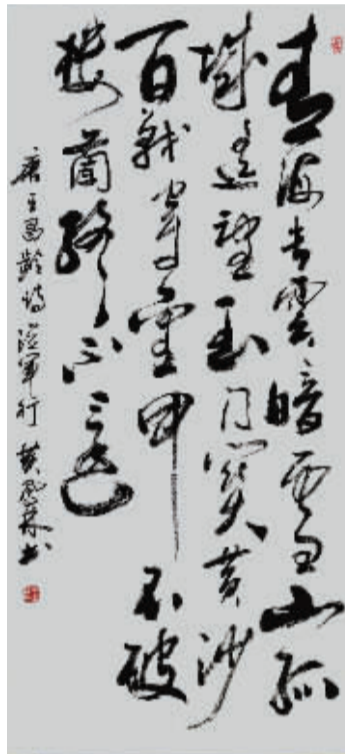 青海長雲暗雪山孤
城遙望玉門關黃沙
百戰穿金甲不破
樓蘭終不還
唐王昌齡詩從軍行 黃書